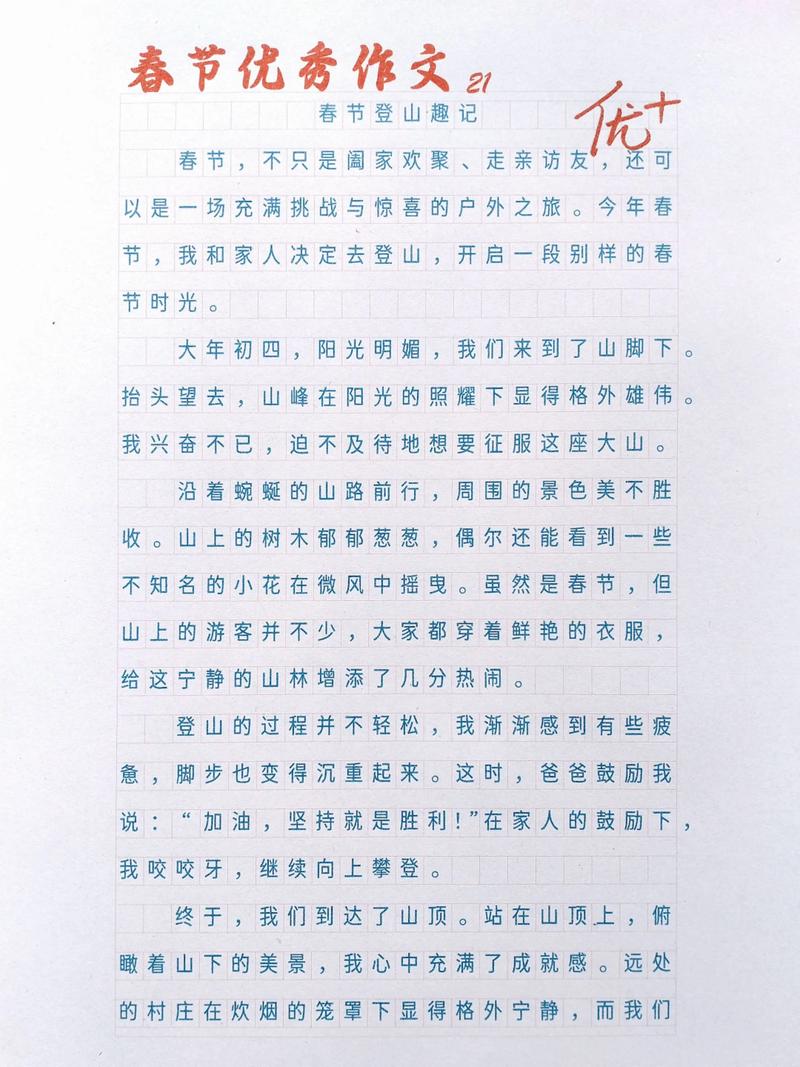 春节优秀作文 21
优+
春节登山趣记
春节，不只是阖家欢聚、走亲访友，还可
以是一场充满挑战与惊喜的户外之旅。今年春
节，我和家人决定去登山，开启一段别样的春
节时光。
大年初四，阳光明媚，我们来到了山脚下。
抬头望去，山峰在阳光的照耀下显得格外雄伟。
我兴奋不已，迫不及待地想要征服这座大山。
沿着蜿蜒的山路前行，周围的景色美不胜
收。山上的树木郁郁葱葱，偶尔还能看到一些
不知名的小花在微风中摇曳。虽然是春节，但
山上的游客并不少，大家都穿着鲜艳的衣服，
给这宁静的山林增添了几分热闹。
登山的过程并不轻松，我渐渐感到有些疲
惫，脚步也变得沉重起来。这时，爸爸鼓励我
说：“加油，坚持就是胜利！”在家人的鼓励下，
我咬咬牙，继续向上攀登。
终于，我们到达了山顶。站在山顶上，俯
瞰着山下的美景，我心中充满了成就感。远处
的村庄在炊烟的笼罩下显得格外宁静，而我们